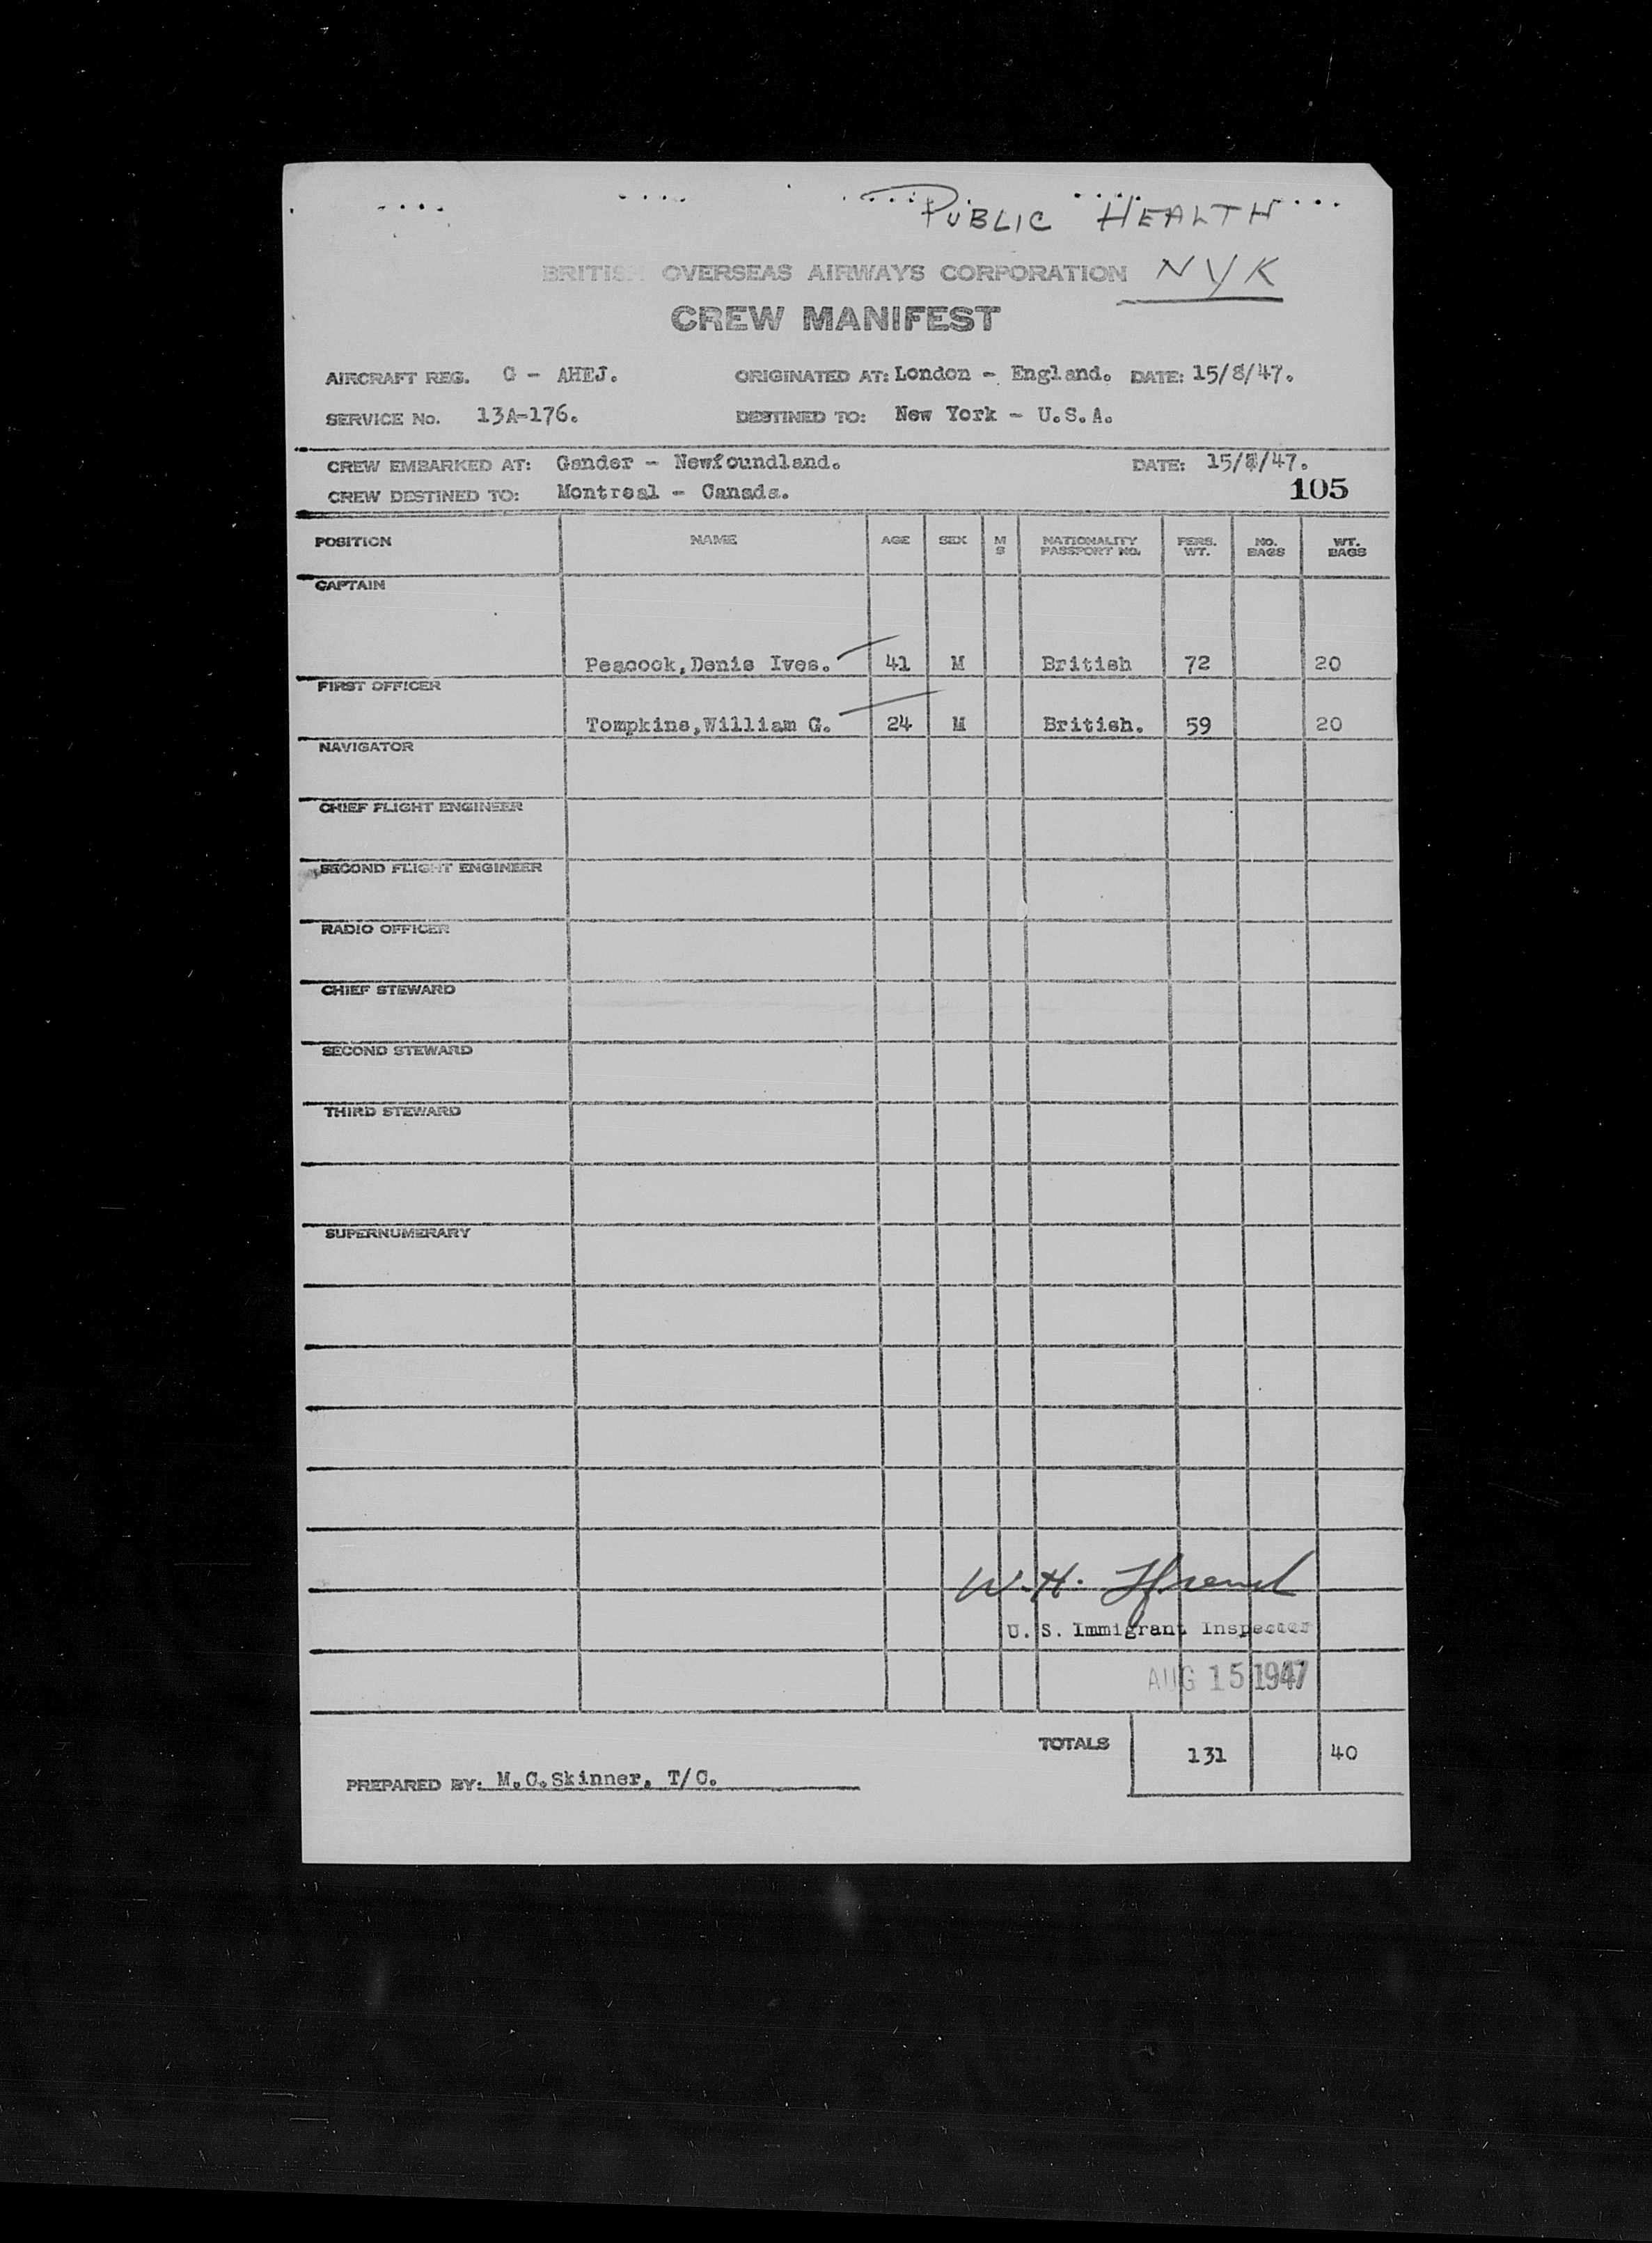 PUBLIC HEALTH
BRITISH OVERSEAS AIRWAYS CORPORATION NYK
CREW MANIFEST
AIRCRAFT REG. G - AHEJ. ORIGINATED AT: London - England. DATE: 15/8/47.
SERVICE No. 13A-176. DESTINED TO: New York - U.S.A.
CREW EMBARKED AT: Gander - Newfoundland. DATE: 15/8/47.
CREW DESTINED TO: Montreal - Canada. 105
POSITION NAME AGE SEX M S NATIONALITY PASSPORT NO. PERS. WT. NO. BAGS WT. BAGS
CAPTAIN
Peacock,Denis Ives. 41 M British 72 20
FIRST OFFICER
Tompkins,William G. 24 M British. 59 20
NAVIGATOR
CHIEF FLIGHT ENGINEER
SECOND FLIGHT ENGINEER
RADIO OFFICER
CHIEF STEWARD
SECOND STEWARD
THIRD STEWARD
SUPERNUMERARY
W. H.
U. S. Immigrant Inspector
AUG 15 1947
TOTALS 131 40
PREPARED BY: M.C.Skinner, T/C.